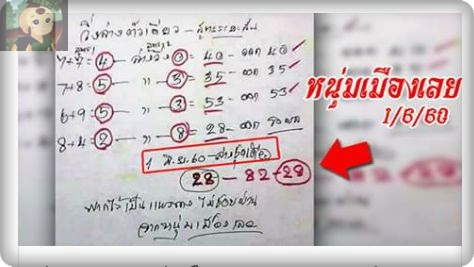 วิ่งล่างตัวเดียว -
7+7= 4 - ล่างวิ่ง 0 = 40 - ออก 40
7+8= 5 - " - 3 = 35 - ออก 35
6+9= 5 - " - 3 = 53 - ออก 53
8+4= 2 - " - 8 = 28 - ออก รอผล
หนุ่มเมืองเลย
1/6/60
1 มิ.ย. 60 - ล่างชุดเดียว
28 - 82 - 28
ฝากไว้เป็นแนวทาง
จากหนุ่มเมืองเลย